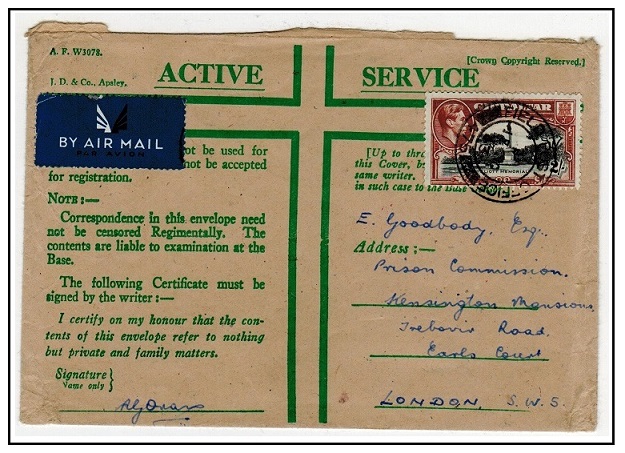 A. F. W3078.
[Crown Copyright Reserved.]
J. D. & Co., Apsley.
ACTIVE SERVICE
BY AIR MAIL
PAR AVION
not be used for
not be accepted
for registration.
NOTE:—
Correspondence in this envelope need
not be censored Regimentally. The
contents are liable to examination at the
Base.
The following Certificate must be
signed by the writer:—
I certify on my honour that the con-
tents of this envelope refer to nothing
but private and family matters.
Signature }
Name only
[Up to thr
this Cover, b
same writer.
in such case to the Base
ELIOTT MEMORIAL
E. Goodbody, Esq.,
Address:—
Prison Commission.
Kensington Mansions,
Trebovir Road,
Earls Court
LONDON, S.W.5.